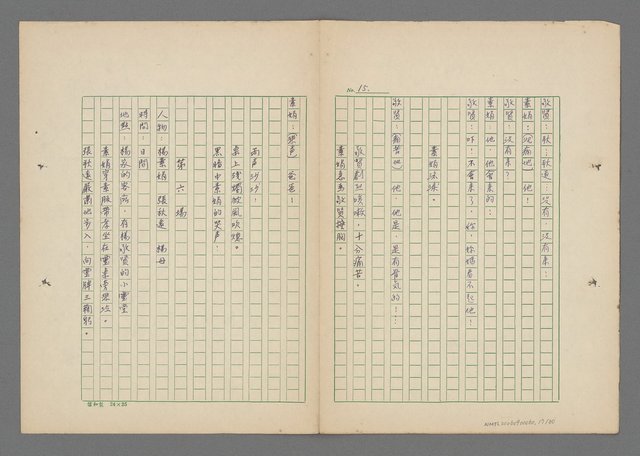 No. 15.
敬賢：秋，秋遠：沒有，沒有來！
素娟：（沉痛地）他！
敬賢：沒有來？
素娟：他，他會來的！
敬賢：咔！不會來了，你，你媽看不起他！
素娟泣涕。
敬賢：（痛苦地）他，他是，是有骨氣的！…
敬賢劇烈咳嗽，十分痛苦。
素娟急為敬賢搥胸。
素娟：（哭，色）爸爸！
雨声沙沙！
桌上殘燭被風吹熄。
黑暗中素娟的哭声！
第六場
人物：楊素娟 張秋遠 楊母
時間：日間
地點：楊家的客廳，有楊敬賢的小靈堂
素娟穿素服帶孝坐在靈桌旁守
張秋遠嚴肅地步入，向靈牌三鞠躬。
24×25
NMTL 17/20